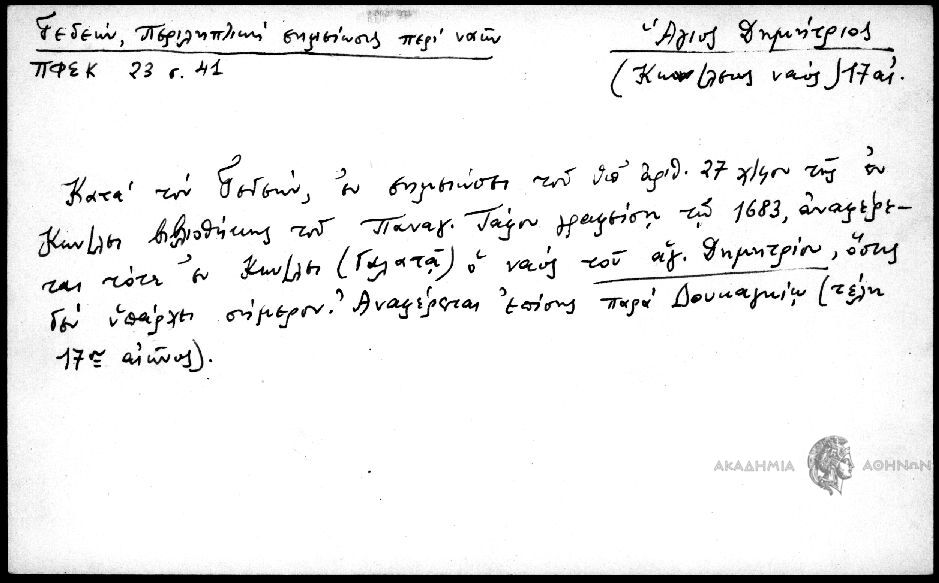 Γεδεών, Περιληπτική σημείωσις περί ναῶν
ΠΦΣΚ 23 σ. 41
Ἅγιος Δημήτριος
(Κων/λεως ναός) 17 αἰ.
Κατά τόν Γεδεών, ἐν σημειώσει τοῦ ὑπ' ἀριθ. 27 χ/φου τῆς ἐν
Κων/λει βιβλιοθήκης τοῦ Παναγ. Τάφου γραφείσῃ τῷ 1683, ἀναφέρε-
ται τότε ἐν Κων/λει (Γαλατᾷ) ὁ ναός τοῦ ἁγ. Δημητρίου, ὅστις
δέν ὑπάρχει σήμερον. Ἀναφέρεται ἐπίσης παρά Δουκαγκίῳ (τέλη
17ου αἰῶνος).
ΑΚΑΔΗΜΙΑ ΑΘΗΝΩΝ